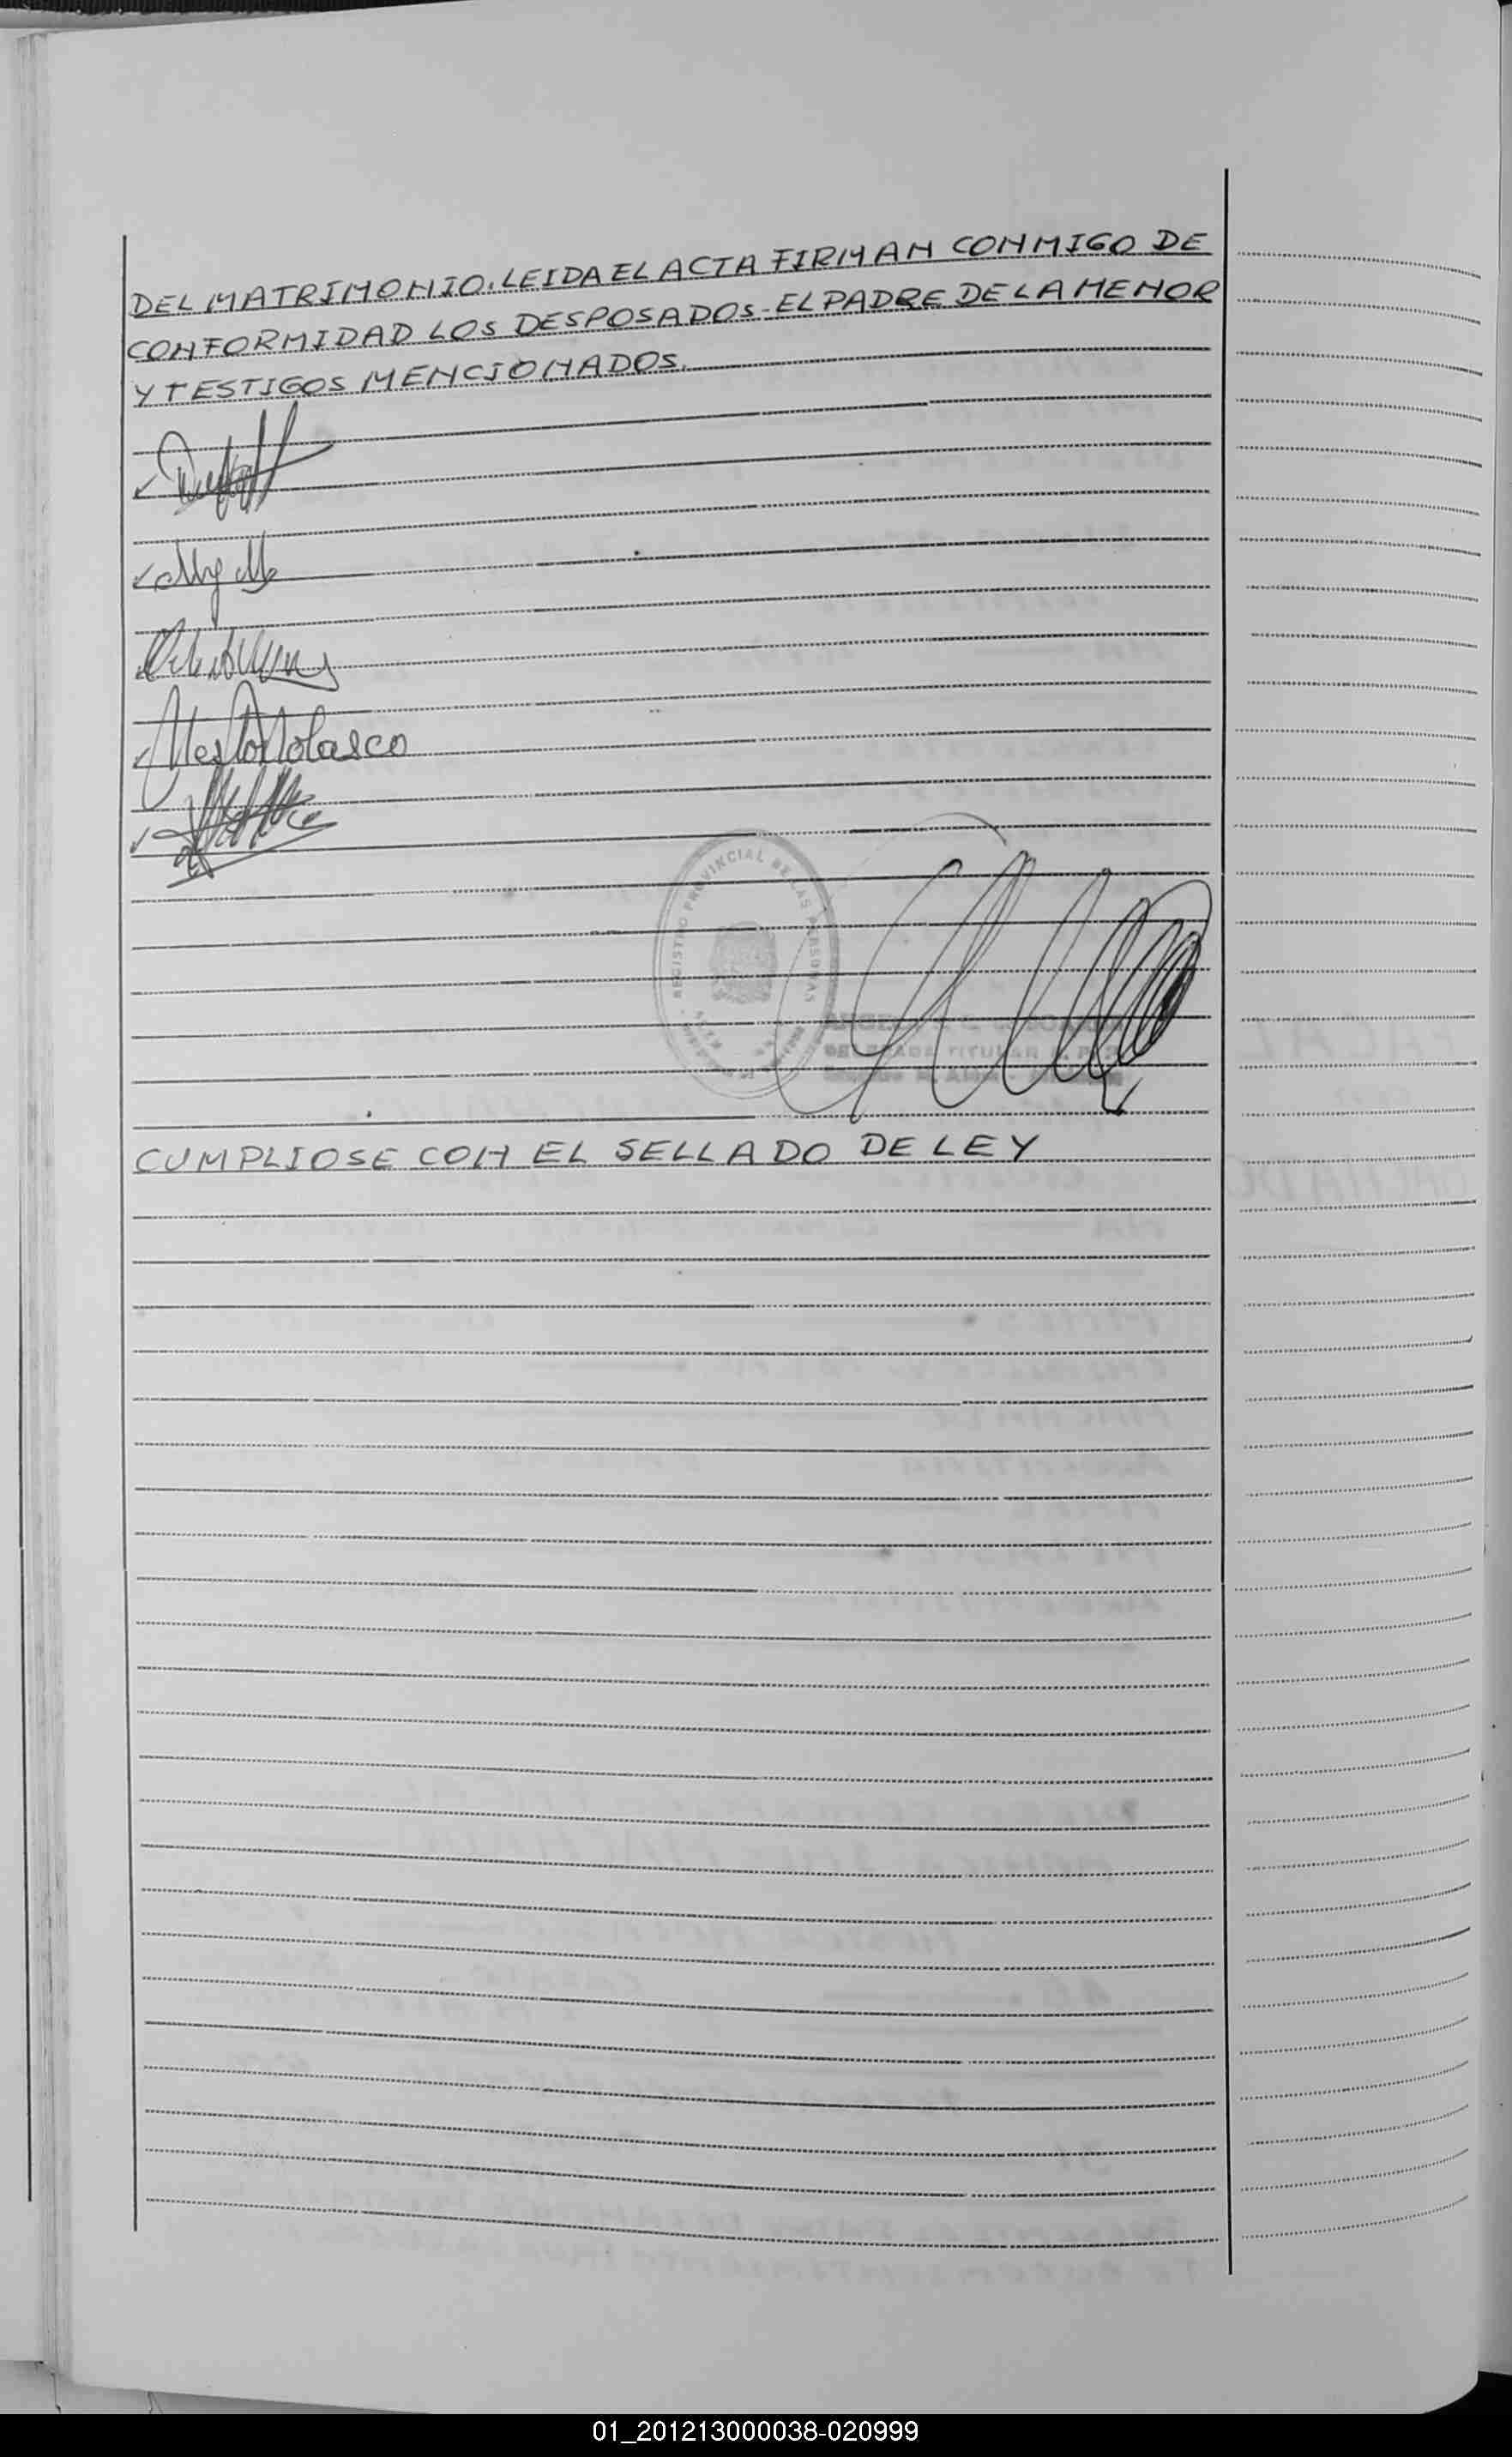 DEL MATRIMONIO. LEIDA EL ACTA FIRMAN CONMIGO DE
CONFORMIDAD LOS DESPOSADOS - EL PADRE DE LA MENOR
Y TESTIGOS MENCIONADOS.
Nestor Nolasco
REGISTRO PROVINCIAL DE LAS PERSONAS
TITULAR
CUMPLIOSE CON EL SELLADO DE LEY
01_201213000038-020999